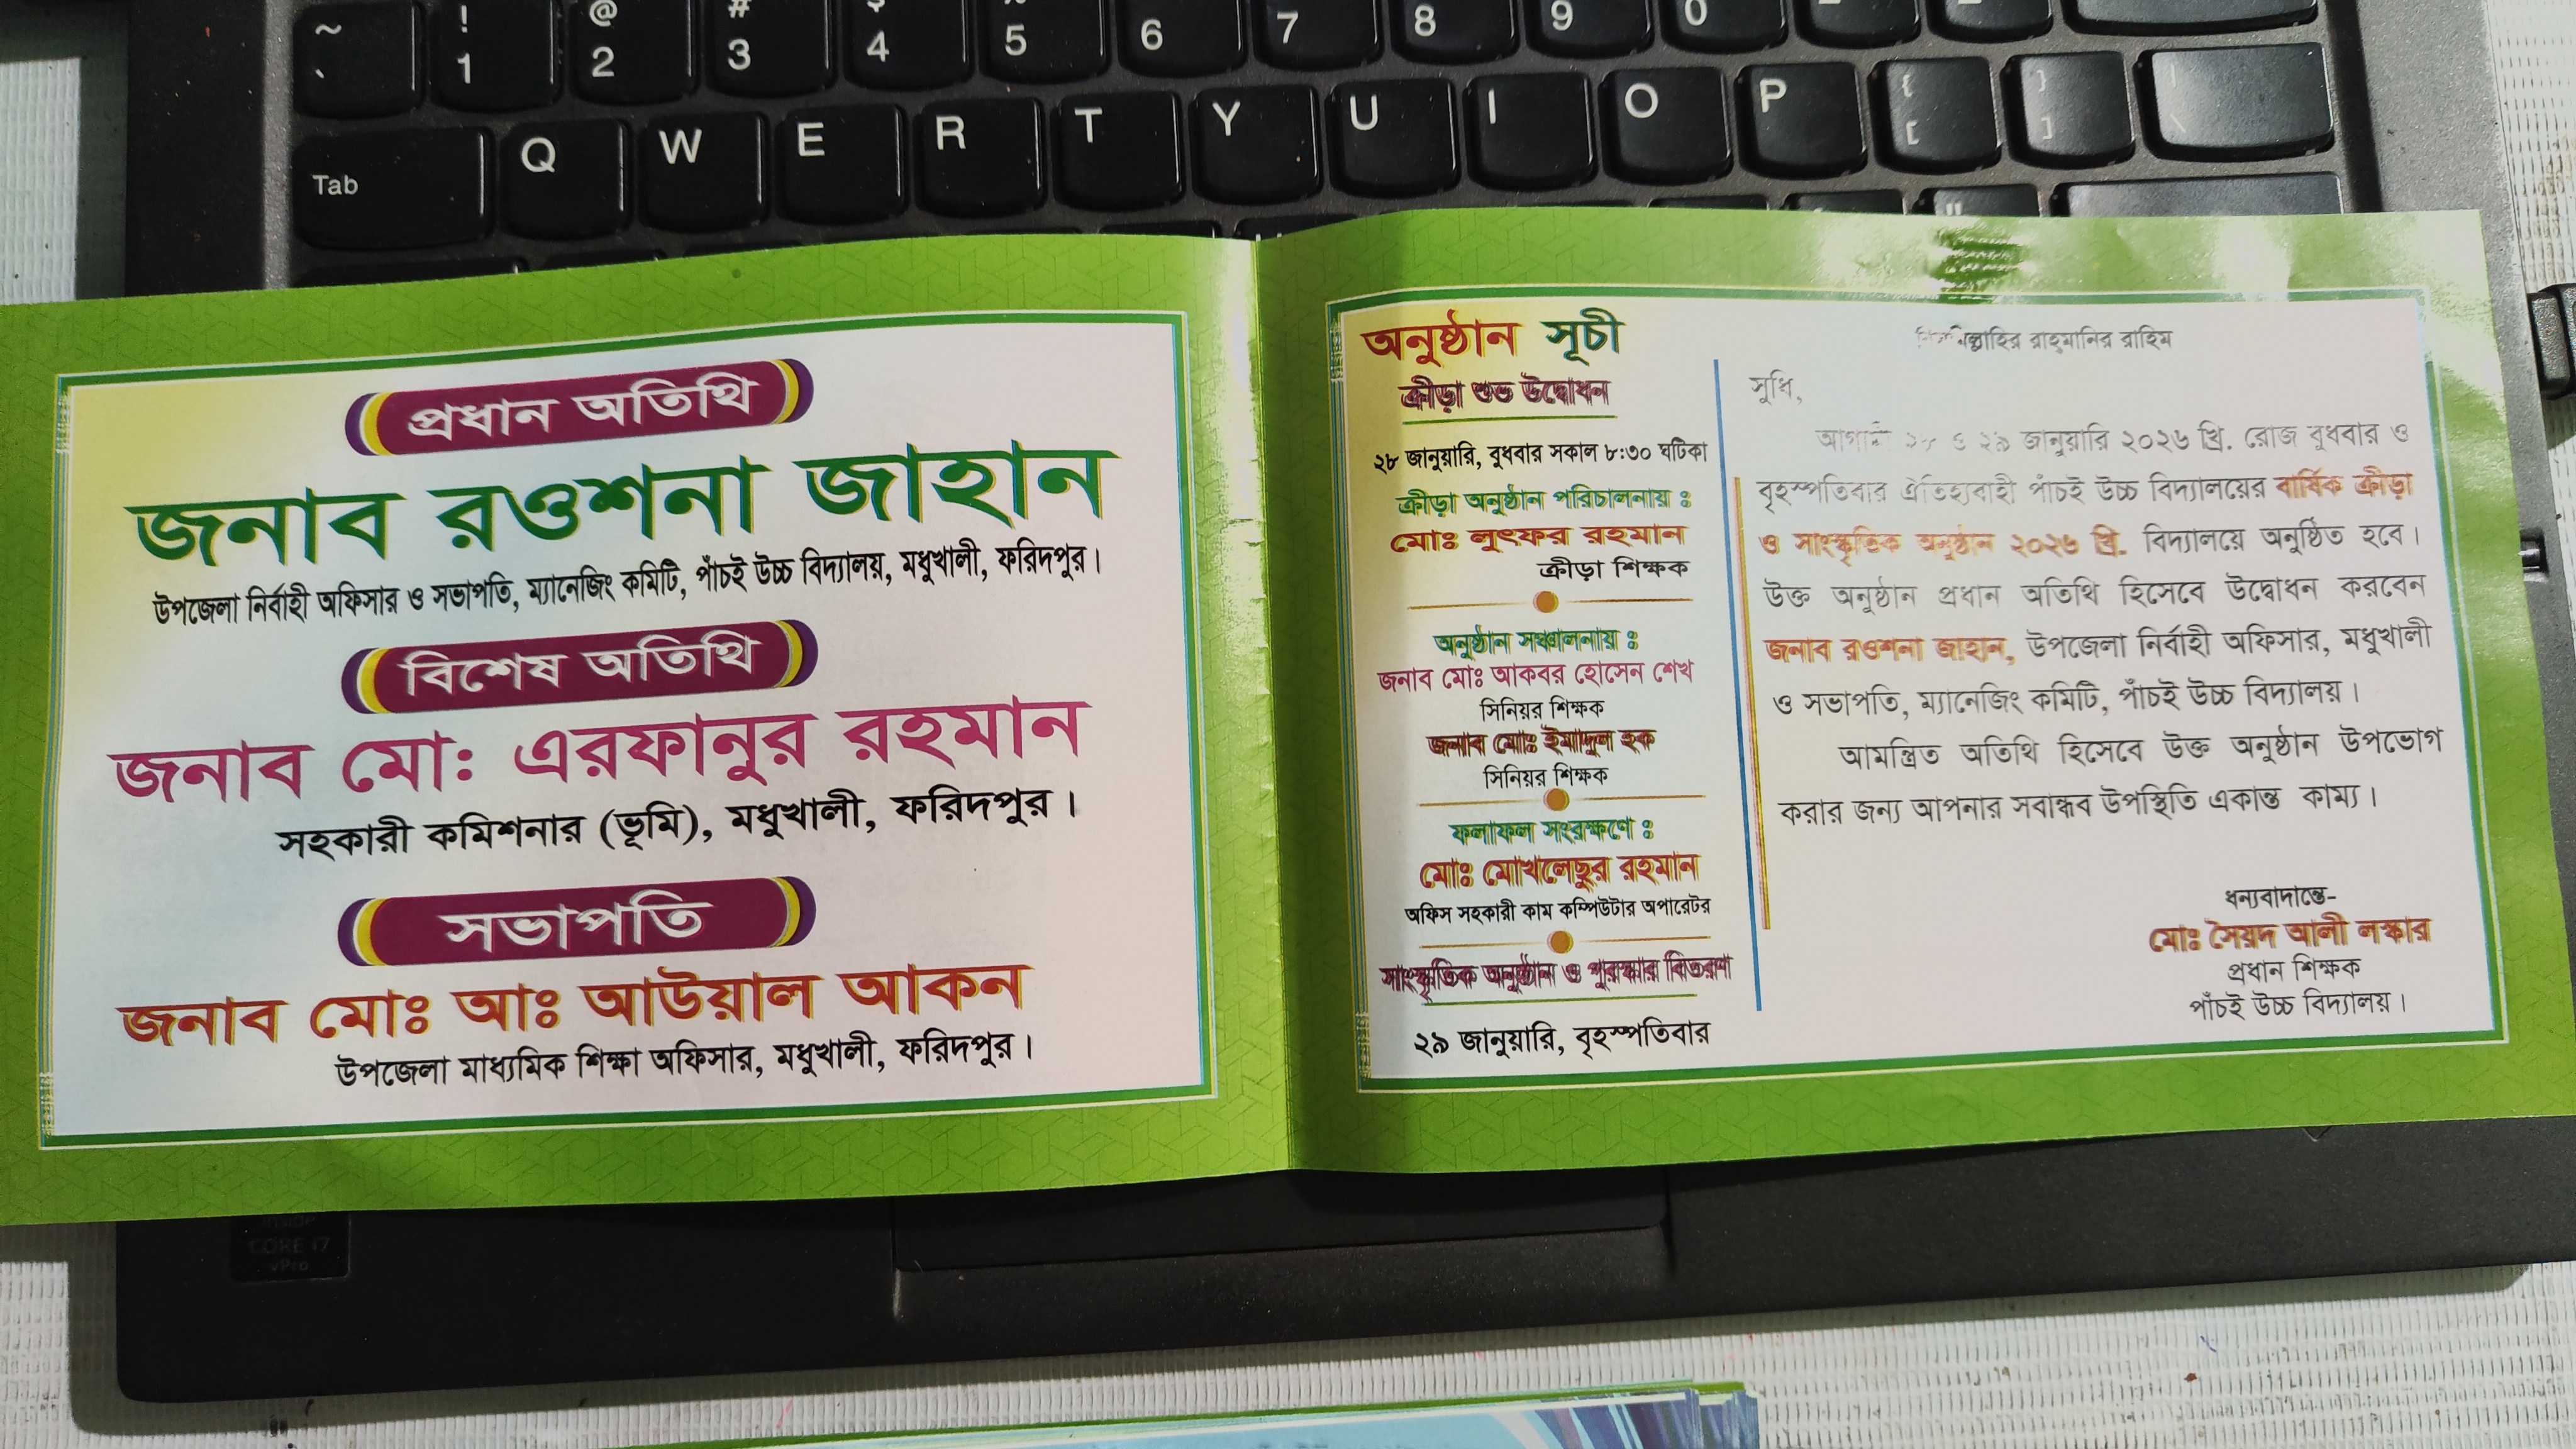 ~ ! @ # 
` 1 2 3 4 5 6 7 8 9 0
Tab Q W E R T Y U I O P { [ } ] | \
প্রধান অতিথি
জনাব রওশনা জাহান
উপজেলা নির্বাহী অফিসার ও সভাপতি, ম্যানেজিং কমিটি, পাঁচই উচ্চ বিদ্যালয়, মধুখালী, ফরিদপুর।
বিশেষ অতিথি
জনাব মো: এরফানুর রহমান
সহকারী কমিশনার (ভূমি), মধুখালী, ফরিদপুর।
সভাপতি
জনাব মোঃ আঃ আউয়াল আকন
উপজেলা মাধ্যমিক শিক্ষা অফিসার, মধুখালী, ফরিদপুর।
অনুষ্ঠান সূচী
ক্রীড়া শুভ উদ্বোধন
২৮ জানুয়ারি, বুধবার সকাল ৮:৩০ ঘটিকা
ক্রীড়া অনুষ্ঠান পরিচালনায় ঃ
মোঃ লুৎফর রহমান
ক্রীড়া শিক্ষক
অনুষ্ঠান সঞ্চালনায় ঃ
জনাব মোঃ আকবর হোসেন শেখ
সিনিয়র শিক্ষক
জনাব মোঃ ইমাদুল হক
সিনিয়র শিক্ষক
ফলাফল সংরক্ষণে ঃ
মোঃ মোখলেছুর রহমান
অফিস সহকারী কাম কম্পিউটার অপারেটর
সাংস্কৃতিক অনুষ্ঠান ও পুরস্কার বিতরণ
২৯ জানুয়ারি, বৃহস্পতিবার
রাহমানির রাহিম
সুধি,
আগামী ২৮ ও ২৯ জানুয়ারি ২০২৬ খ্রি. রোজ বুধবার ও
বৃহস্পতিবার ঐতিহ্যবাহী পাঁচই উচ্চ বিদ্যালয়ের বার্ষিক ক্রীড়া
ও সাংস্কৃতিক অনুষ্ঠান ২০২৬ খ্রি. বিদ্যালয়ে অনুষ্ঠিত হবে।
উক্ত অনুষ্ঠান প্রধান অতিথি হিসেবে উদ্বোধন করবেন
জনাব রওশনা জাহান, উপজেলা নির্বাহী অফিসার, মধুখালী
ও সভাপতি, ম্যানেজিং কমিটি, পাঁচই উচ্চ বিদ্যালয়।
আমন্ত্রিত অতিথি হিসেবে উক্ত অনুষ্ঠান উপভোগ
করার জন্য আপনার সবান্ধব উপস্থিতি একান্ত কাম্য।
ধন্যবাদান্তে-
মোঃ সৈয়দ আলী লস্কার
প্রধান শিক্ষক
পাঁচই উচ্চ বিদ্যালয়।
inside
CORE i7
vPro